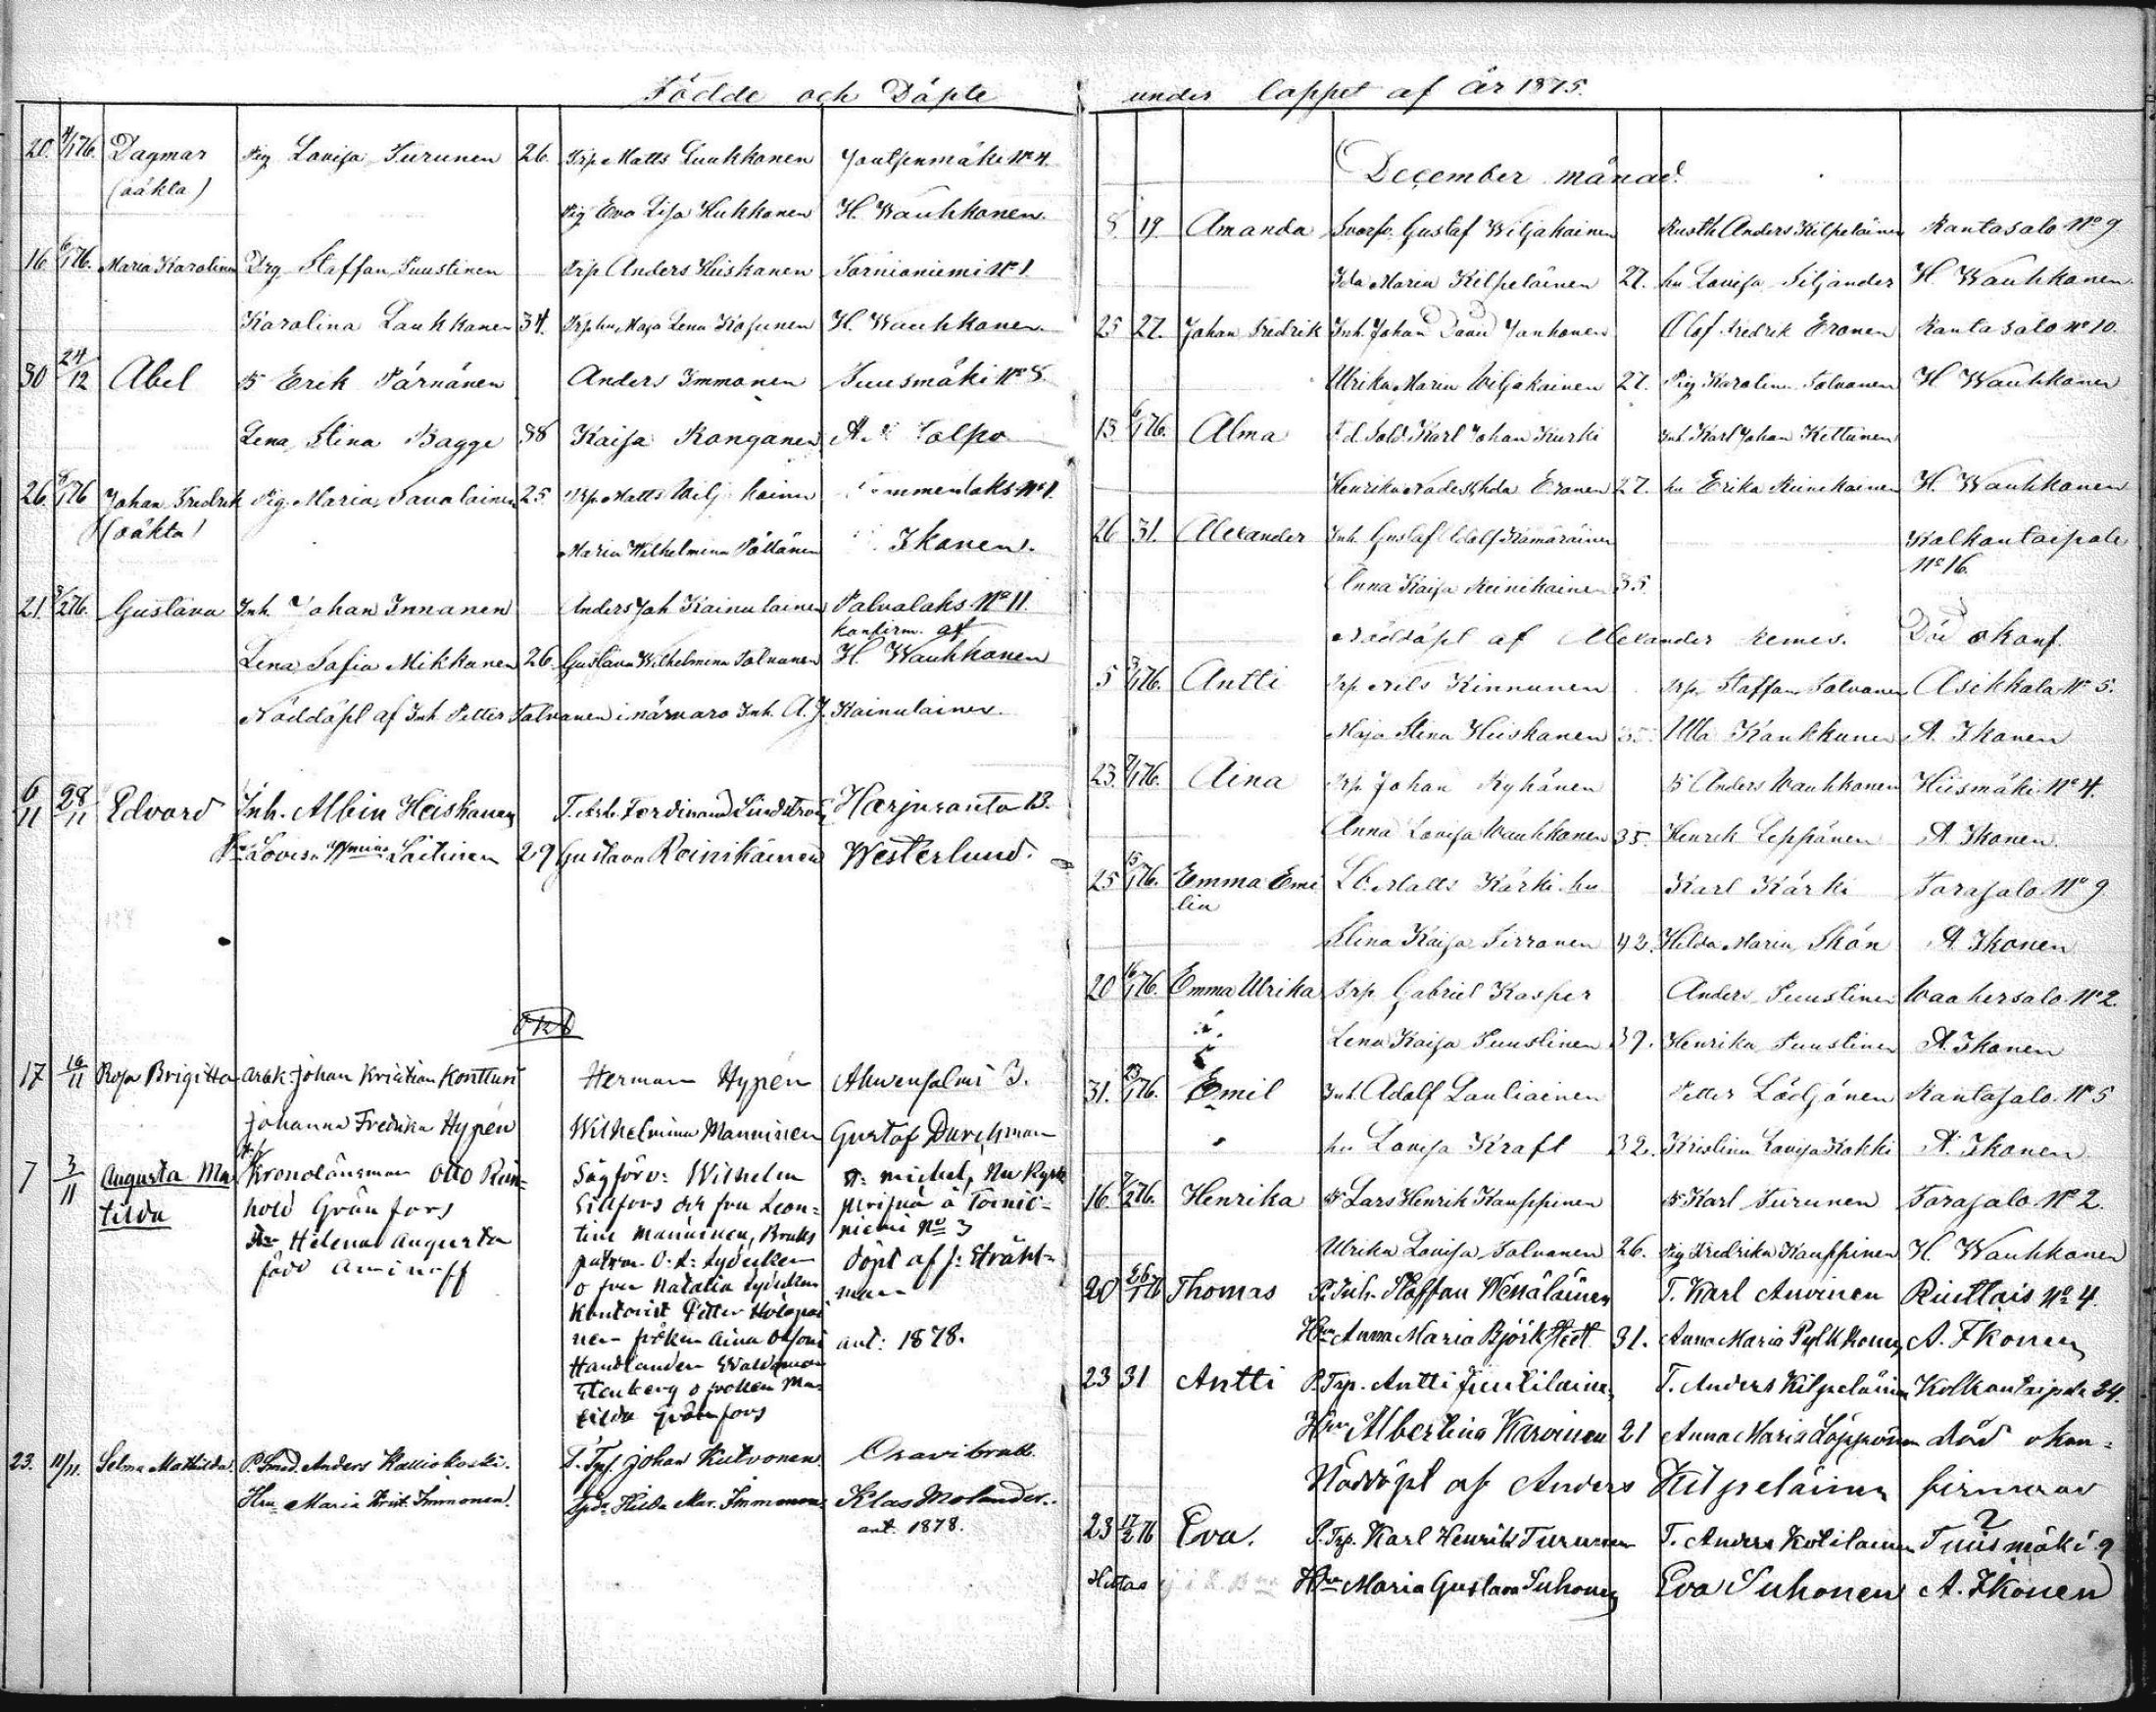 Födde och Döpte under loppet af År 1875.
20. 4/1 76. Dagmar Pig. Lovisa Turunen 26. Trp Matts Luukkonen Joutsenmäki No 4.
(oäkta)
Pig Eva Lisa Kukkonen H. Wauhkonen.
16 6/1 76. Maria Karolina Drg Staffan Puustinen Trp Anders Heiskanen Tornioniemi No 1.
Karolina Laukkanen 34. Trp hu Maja Lena Kosunen H. Wauhkonen.
30 24/12 Abel B Erik Pärnänen Anders Immonen Tuusmäki No 8.
Lena Stina Bagge 38 Kaisa Ronganen
26. 8/1 76 Johan Fredrik Pig. Maria Savolainen 25 Trp Matts Wilj kainen No 1.
(oäkta)
Maria Wilhelmina Pöllänen Ikonen.
21. 3/2 76. Gustava Inh. Johan Innanen Anders Joh Kainulainen Palvalaks No 11.
konfirm. af
Lena Sofia Mikkonen 26. Gustava Wilhelmina Tolvanen H. Wauhkonen
Nöddöpt af Inh Petter Tolvanen i närvaro Inh. A.J. Kainulainen.
6/11 28/11 Edvard Inh. Albin Heiskanen T. Arb. Ferdinand Lindström Harjuranta 13.
Hu Lovisa Wmina Laitinen 29 Gustava Reinikainen Westerlund.
17 16/11 Rosa Brigitta Arbk. Johan Kristian Kontturi Herman Hypén Ahvensalmi 3.
Johanna Fredrika Hypén Wilhelmina Manninen Gustaf Durchman
7 3/11 Augusta Ma Kronolänsman Otto Rein= Sågförv: Wilhelm St: Michel, Nu Kyrk
tilda hold Grönfors och fru Leon= å Tornio=
Hu Helena Augusta tine Manninen, Bruks niemi No 3
född Aminoff patron Lydecken Döpt af J: Stråhl=
o fru Natalia Lydecken man
Kontorist Petter Holopai
nen fröken Aina ant: 1878.
Handlanden Waldemar
Stenberg o fröken Ma
tilda Grönfors
23. 11/11. Selma Mathilda. P. Smed. Anders Kalliokoski. T. Johan Kutvonen Oravibruk.
Hu Maria Krist. Immonen. Hilda Mar. Immonen. Klas Molander.
ant. 1878.
December månad.
8. 19. Amanda Svarfv. Gustaf Wiljakainen Rusth Anders Kilpeläinen Rantasalo No 9
Ida Maria Kilpeläinen 27. hu Lovisa Siljander H. Wauhkonen.
25 27. Johan Fredrik Inh Johan David Janhonen Olof Fredrik Eronen Rantasalo No 10.
Ulrika Maria Wiljakainen 27. Pig Karolina Tolvanen H Wauhkonen
13 6/1 76. Alma F.d. Sold Karl Johan Kurki Inh. Karl Johan Kettunen
Henrika Nadeschda Eronen 27. hu Erika Reinikainen H. Wauhkonen
26 31. Alexander Inh. Gustaf Adolf Kämäräinen Kolkontaipale
No 16.
Anna Kaisa Reinikainen 35.
Nöddöpt af Alexander Remes. Död okonf.
5 3/1 76. Antti Trp Nils Kinnunen Trp. Staffan Tolvanen Asikkala No 5.
Maja Stina Heiskanen 35. Ulla Kaukkunen A. Ikonen
23. 7/1 76. Aina Trp Johan Ryhänen B Anders Wauhkonen Hiismäki No 4.
Anna Lovisa Wauhkonen 35. Henrik Leppänen A. Ikonen.
25 15/1 76. Emma Emi Lb. Matts Kärki hu Karl Kärki Torasalo No 9.
lia
Stina Kaisa Sirranen 42. Hilda Maria Skön A. Ikonen
20 16/1 76. Emma Ulrika Trp Gabriel Kasper Anders Puustinen Waahersalo No 2.
Lena Kaisa Puustinen 39. Henrika Puustinen A. Ikonen
31. 23/1 76. Emil Inh. Adolf Lauliainen Petter Lödjönen Rantasalo No 5
hu Lovisa Kraft 32. Kristina Lovisa Kokki A. Ikonen
16. 7/2 76. Henrika B Lars Henrik Kauppinen B Karl Turunen Torasalo No 2.
Ulrika Lovisa Tolvanen 26. Pig Fredrika Kauppinen H. Wauhkonen
20 26/1 76 Thomas P. Inh. Staffan Wenäläinen T. Karl Auvinen No 4.
Hu Anna Maria Björkstedt 31. Anna Maria Pylkkonen A. Ikonen
23 31 Antti P. Trp. Antti Juutilainen T. Anders Kilpeläinen Kolkontaipale 24.
Hu Albertina Karvinen 21 Anna Maria Loppönen död okon=
Nöddöpt af Anders Kilpeläinen firmerad
23 17/2 76 Eva. P. Trp. Karl Henrik Turunen T. Anders Kotilainen Tuusmäki 9
Hu Maria Gustava Suhonen Eva Suhonen A. Ikonen